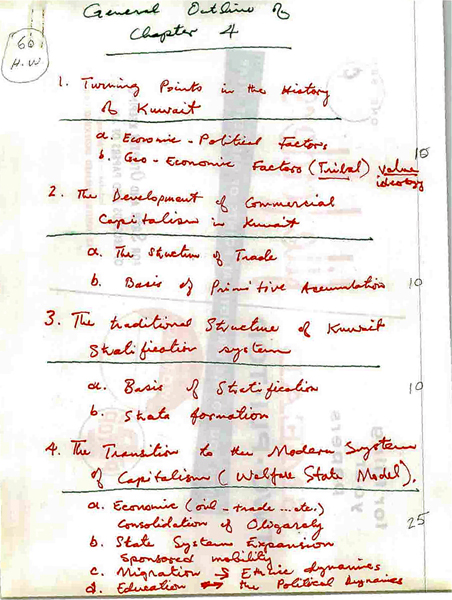 General Outline of
Chapter 4
60
H.W.
1. Turning Points in the History
of Kuwait
a. Economic - Political Factors
b. Geo - Economic Factors (Tribal) value
ideology
15
2. The Development of Commercial
Capitalism in Kuwait
a. The Structure of Trade
b. Basis of Primitive Accumulation 10
3. The traditional Structure of Kuwait
Stratification system
a. Basis of Stratification 10
b. Strata formation
4. The Transition to the Modern System
of Capitalism (Welfare State Model).
a. Economic (oil - trade ... etc.)
Consolidation of Oligarchy 25
b. State System Expansion
Sponsored mobility
c. Migration → Ethnic dynamics
d. Education ↔ the Political Dynamics